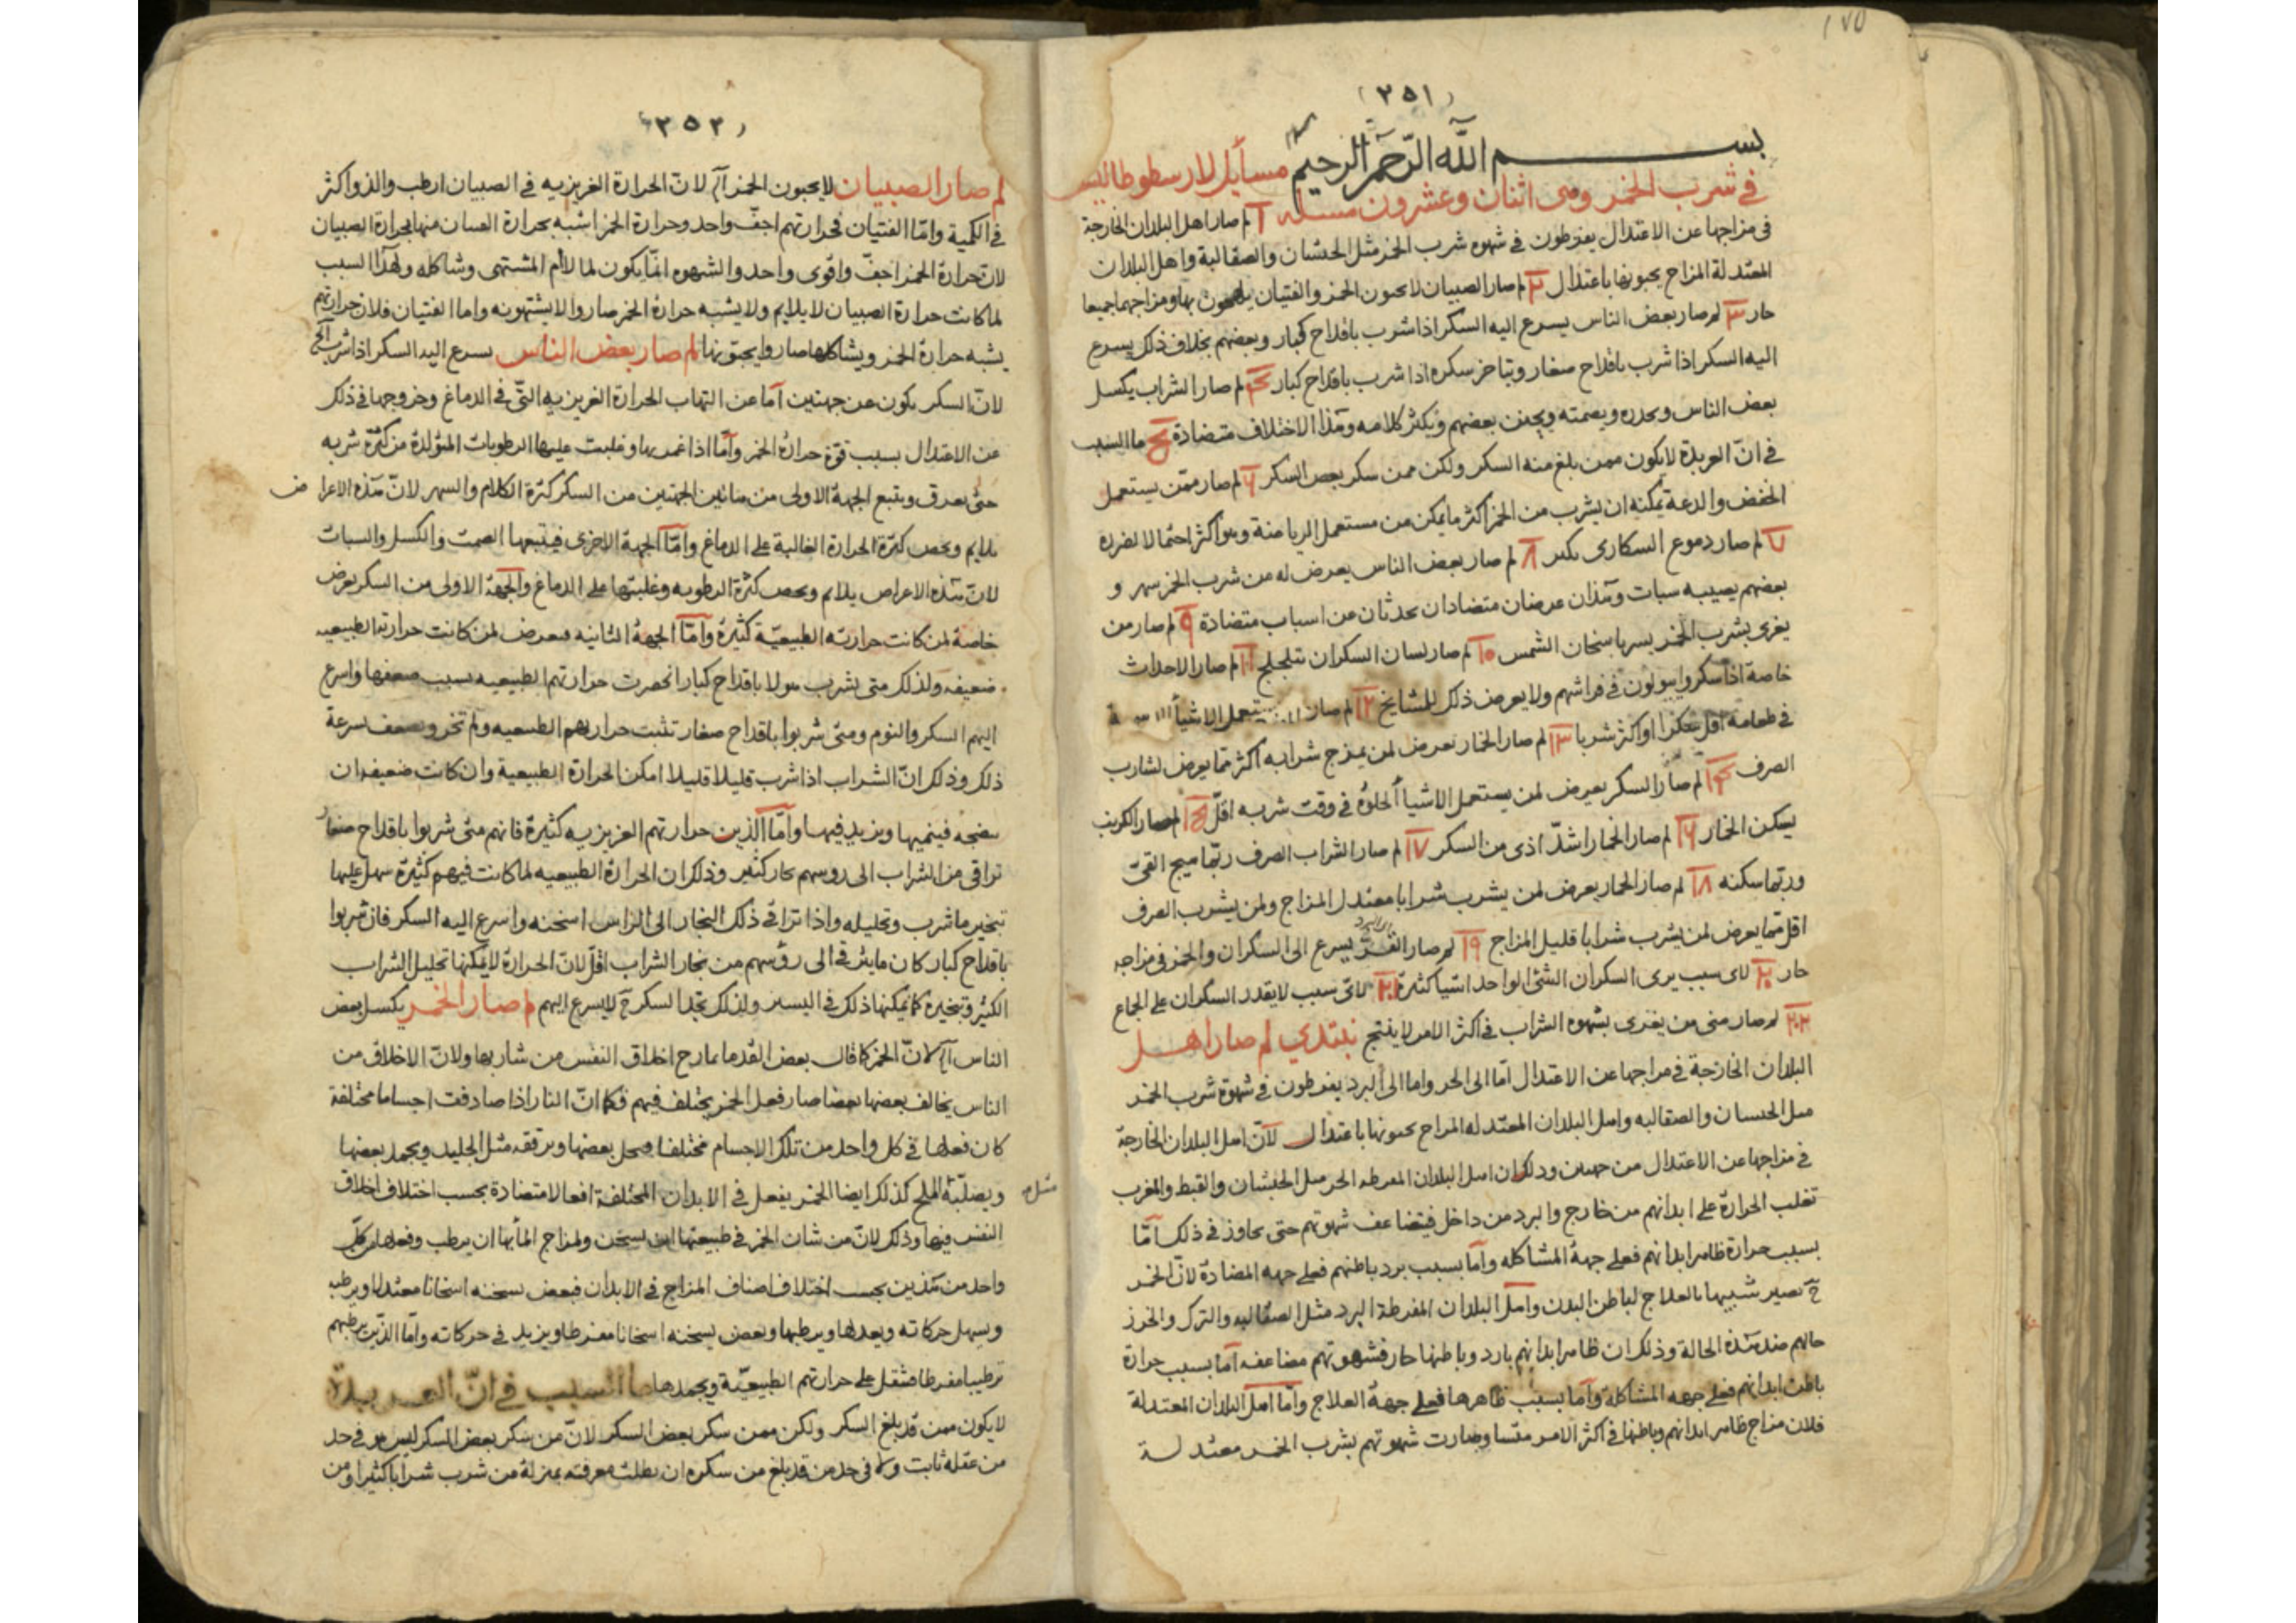 ١٧٥
(٣٥١)
بسم الله الرحمن الرحيم مسائل لارسطوطاليس
في شرب الخمر ومى اثنان وعشرون مسله ١ لم صار اهل البلدان الخارجة
فى مزاجها عن الاعتدال يفرطون فى شهوه شرب الخمر مثل الحبشان والصقالبة واهل البلدان
المعتدلة المزاج يحبونها باعتدال ٢ لم صار الصبيان لا يحبون الخمر والفتيان بها ومزاجهما جميعا
حار ٣ لم صار بعض الناس يسرع اليه السكر اذا شرب باقداح كبار وبعضهم بخلاف ذلك يسرع
اليه السكر اذا شرب باقداح صغار ويتاخر سكره اذا شرب باقداح كبار ٤ لم صار الشراب يكسل
بعض الناس ويخدره ويصمته ويجنن بعضهم ويكثر كلامه وهذا الاختلاف متضادة ٥ ما السبب
فى انّ العربدة لا يكون ممن بلغ منه السكر ولكن ممن سكر بعض السكر ٦ لم صار ممّن يستعمل
الخفض والدعة يمكنه ان يشرب من الخمر اكثر ما يمكن من مستعمل الرياضة وهو اكثر احتمالا لضرره
٧ لم صار دموع السكارى ٨ لم صار بعض الناس يعرض له من شرب الخمر سهر و
بعضهم يصيبه سبات وهذان عرضان متضادان يحدثان عن اسباب متضادة ٩ لم صار من
يغرى بشرب الخمر باسخان الشمس ١٠ لم صار لسان السكران يتلجلج ١١ لم صار الاحداث
خاصة اذا سكروا يبولون فى فراشهم ولا يعرض ذلك للمشايخ ١٢ لم صار يستعمل الاشيا
فى طعامه اقل سكرا او اكثر شربا ١٣ لم صار الخمار يعرض لمن يمزج شرابه اكثر مما يعرض لشارب
الصرف ١٤ لم صار السكر يعرض لمن يستعمل الاشيا الحلوه فى وقت شربه اقلّ ١٥ لم صار الكرنب
يسكن الخمار ١٦ لم صار الخمار اشدّ اذى من السكر ١٧ لم صار الشراب الصرف ربّما هيج القىء
وربّما سكنه ١٨ لم صار الخمار يعرض لمن يشرب شرابا معتدل المزاج ولمن يشرب الصرف
اقل ممّا يعرض لمن يشرب شرابا قليل المزاج ١٩ لم صار القرّ يسرع الى السكران والخمر فى مزاجه
حار ٢٠ لاى سبب يرى السكران الشئ الواحد اشيا كثيرة ٢١ لاىّ سبب لا يقدر السكران على الجماع
٢٢ لم صار منى من يغرى بشهوه الشراب فى اكثر الامر لا ينتج نبتدي لم صار اهل
البلدان الخارجة فى مزاجها عن الاعتدال امّا الى الحر واما الى البرد يفرطون فى شهوة شرب الخمر
مثل الحبسان والصقالبه واهل البلدان المعتدله المزاج يحبونها باعتدال لانّ اهل البلدان الخارجة
فى مزاجها عن الاعتدال من جهتين وذلك ان اهل البلدان المفرطه الحر مثل الحبشان والقبط والمغرب
تغلب الحرارة على ابدانهم من خارج والبرد من داخل فيتضاعف شهوتهم حتى يجاوز فى ذلك امّا
بسبب حرارة ظاهر ابدانهم فعلى جهة المشاكله وامّا بسبب برد باطنهم فعلى جهه المضادة لانّ الخمر
ح تصير شبيها بالعلاج لباطن البدن واهل البلدان المفرطة البرد مثل الصقالبه والترك والخزر
حالهم ضد هذه الحالة وذلك ان ظاهر ابدانهم بارد وباطنها حار فشهوتهم مضاعفه امّا بسبب حرارة
باطن ابدانهم فعلى جهه المشاكلة وامّا بسبب ظاهرها فعلى جهة العلاج وامّا اهل البلدان المعتدلة
فلان مزاج ظاهر ابدانهم وباطنها فى اكثر الامر متساو صارت شهوتهم بشرب الخمر معتدلة
(٣٥٢)
لم صار الصبيان لا يحبون الخمر لانّ الحرارة الغريزيه فى الصبيان ارطب والذ واكثر
فى الكمية وامّا الفتيان فحرارتهم اجفّ واحد وحرارة الخمر اشبه بحرارة الفتيان منها بحرارة الصبيان
لانّ حرارة الخمر اجفّ واقوى واحد والشهوه انّما يكون لما لام المشتهى وشاكله ولهذا السبب
لما كانت حرارة الصبيان لا يلايم ولا يشبه حرارة الخمر صاروا لا يشتهونه واما الفتيان فلان حرارتهم
يشبه حرارة الخمر ويشاكلها صاروا يحبّونها لم صار بعض الناس يسرع اليه السكر اذا شرب
لانّ السكر يكون عن جهتين امّا عن التهاب الحرارة الغريزيه التّى فى الدماغ وخروجها فى ذلك
عن الاعتدال بسبب قوّة حرارة الخمر وامّا اذا غمرها وغلبت عليها الرطوبات المتولدة من كثرة شربه
حتى يعرق ويتبع الجهة الاولى من هاتين الجهتين من السكر كثرة الكلام والسهر لانّ هذه الاعرا ض
يلايم ويخص كثرة الحرارة الغالبة على الدماغ وامّا الجهة الاخرى فيتبعها الصمت والكسل والسبات
لانّ هذه الاعراض يلائم ويخص كثرة الرطوبه وغلبتها على الدماغ والجهة الاولى من السكر يعرض
خاصة لمن كانت حرارته الطبيعيّة كثيرة وامّا الجهة الثانيه فيعرض لمن كانت حرارته الطبيعيه
ضعيفه ولذلك متى يشرب هولا باقداح كبار انحصرت حرارتهم الطبيعيه بسبب ضعفها واسرع
اليهم السكر والنوم ومتى شربوا باقداح صغار تثبت حرارتهم الطبيعيه ولم تخر وتضعف سرعة
ذلك وذلك انّ الشراب اذا شرب قليلا قليلا امكن الحرارة الطبيعية وان كانت ضعيفه ان
ينضجه فينميها ويزيد فيها وامّا الذين حرارتهم الغريزيه كثيرة فانهم متى شربوا باقداح صغار
تراقى من الشراب الى روسهم بخار كثير وذلك ان الحرارة الطبيعيه لما كانت فيهم كثيرة سهل عليها
تبخير ما شرب وتحليله واذا تراقى ذلك البخار الى الراس اسخنه واسرع اليه السكر فان شربوا
باقداح كبار كان ما يترقى الى رؤسهم من بخار الشراب اقلّ لانّ الحرارة لا يمكنها تحليل الشراب
الكثير وتبخيره كما يمكنها ذلك فى اليسير ولذلك نجد السكر ح لا يسرع اليهم لم صار الخمر يكسل بعض
الناس لانّ الخمر كما قال بعض القدما يمازج اخلاق النفس من شاربها ولانّ الاخلاق من
الناس يخالف بعضها بعضا صار فعل الخمر يختلف فيهم فكما انّ النار اذا صادفت اجساما مختلفة
كان فعلها فى كل واحد من تلك الاجسام مختلفا فيحل بعضها ويرققه مثل الجليد ويجمد بعضها
ويصلّبه مثل الملح كذلك ايضا الخمر يفعل فى الابدان المختلفة افعالا متضادة بحسب اختلاف اخلاق
النفس فيها وذلك لانّ من شان الخمر فى طبيعتها ان يسخن ولمزاج المأ بها ان يرطب وفعلها كلّ
واحد من هذين بحسب اختلاف اصناف المزاج فى الابدان فبعض يسخنه اسخانا معتدلا ويرطب
ويسهل حركاته ويعدلها ويرطبها وبعض يسخنه اسخانا مفرطا ويزيد فى حركاته وامّا الذين يرطبهم
ترطيبا مفرطا فتثقل على حرارتهم الطبيعيّة ويجمدها ما السبب فى انّ العربدة
لا يكون ممن قد بلغ السكر ولكن ممن سكر بعض السكر لانّ من سكر بعض السكر ليس هو فى حد
من عقله ثابت ولا فى حد من قد بلغ من سكره ان بطلت معرفته بمنزلة من شرب شرابا كثيرا ومن